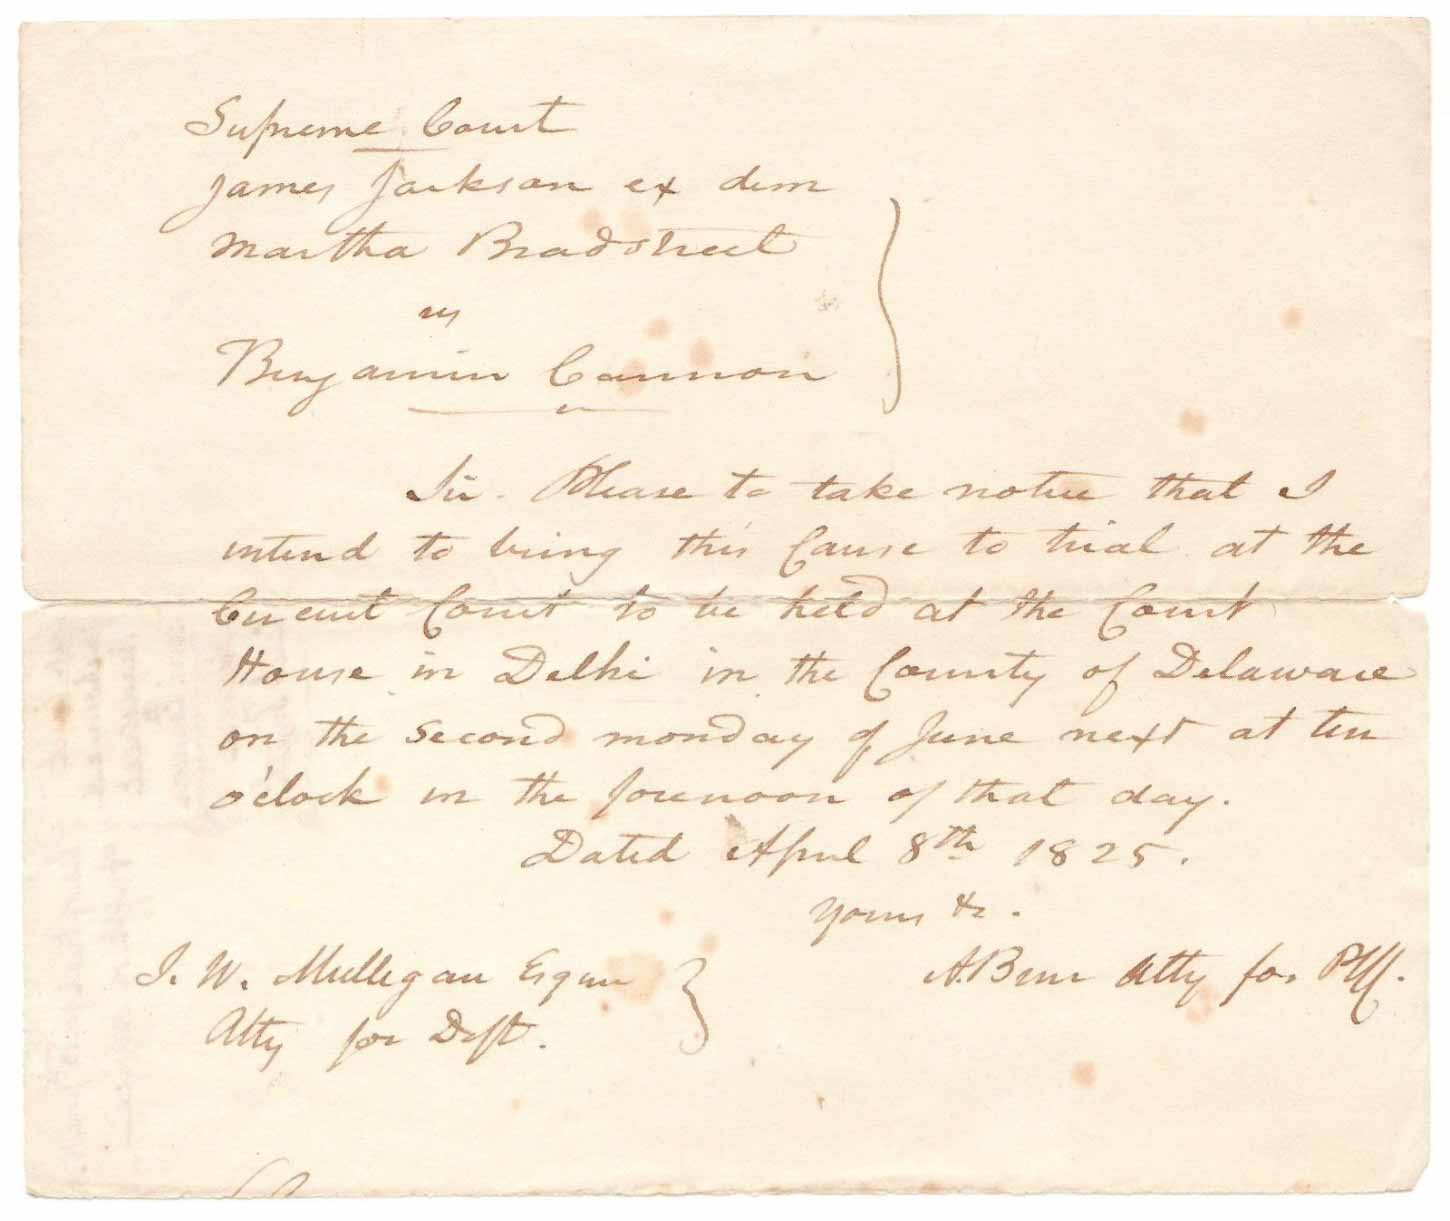 Supreme Court
James Jackson ex dem
Martha Bradstreet
vs
Benjamin Cannon
Sir. Please to take notice that I
intend to bring this Cause to trial at the
Circuit Court to be held at the Court
House in Delhi in the County of Delaware
on the second monday of June next at ten
o'clock in the forenoon of that day.
Dated April 8th 1825.
Yours &c.
I. W. Mulligan Esquire
Atty for Deft.
A. Atty for Plff.